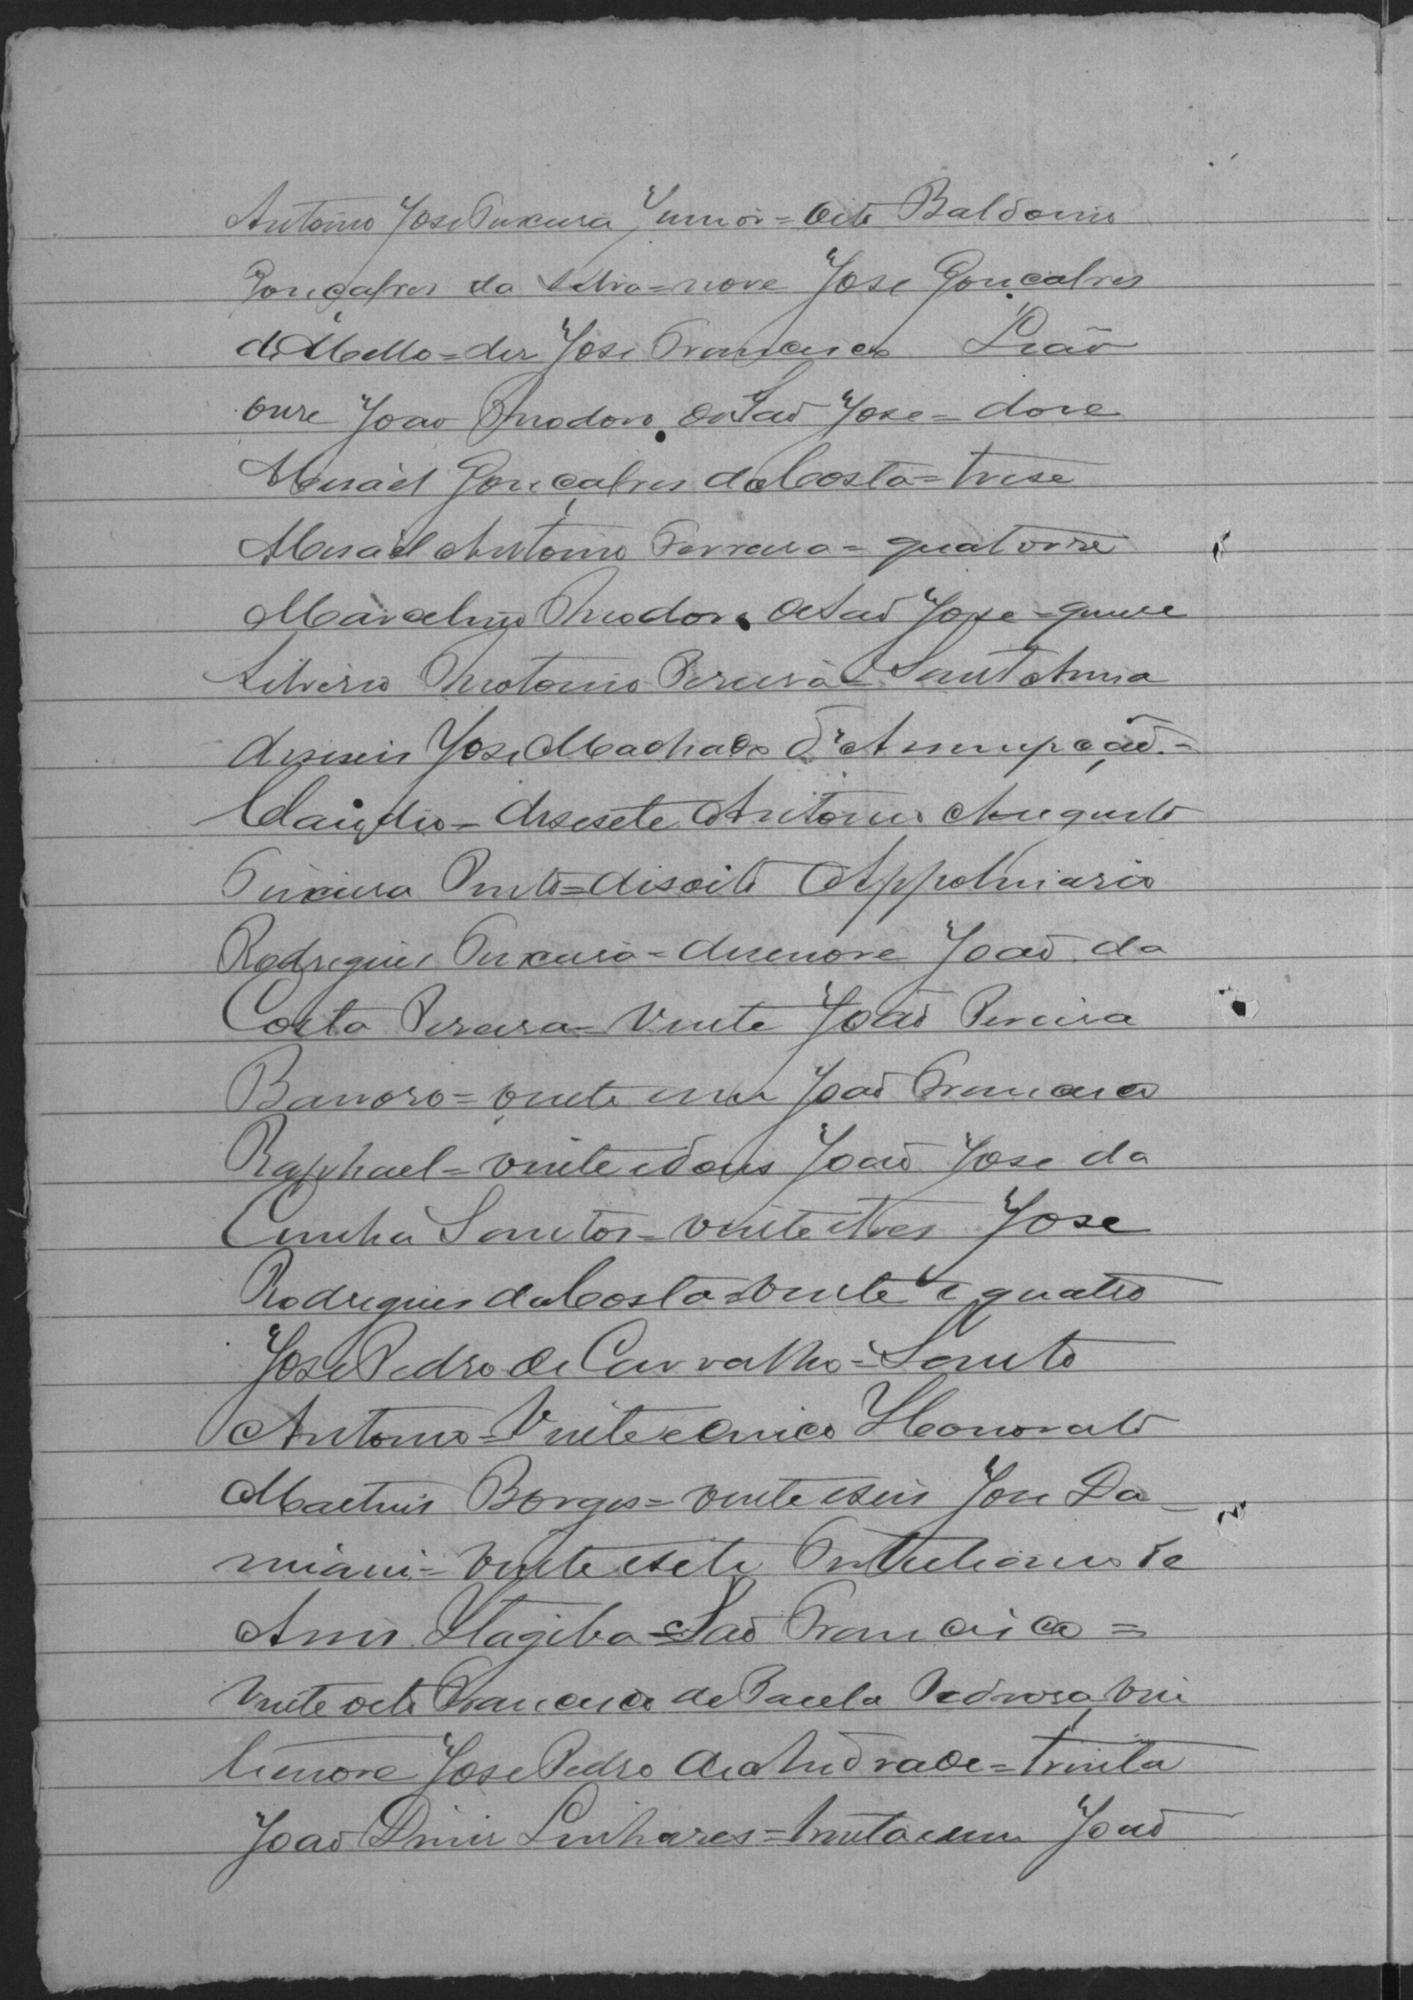 Antonio Jose Teixeira Junior = Oito Baldoino
Gonçalves da Silva = nove Jose Gonçalves
de Mello = dez Jose Francisco Leão
onze Joao Theodoro de Saõ Jose = doze
Misael Gonçalves da Costa = trese
Misael Antonio Ferreira = quatorze
Marcelino Theodoro de Saõ Jose = quinze
Silverio Theotonio Pereira = Sant Anna
deseseis Jose Machado d'Assumpçaõ =
Claudio = desesete Antonio Augusto
Teixeira Pinto = desoito Appolinario
Rodrigues Teixeira = desenove Joaõ da
Costa Pereira = Vinte Joaõ Pereira
Barroso = vinte um Joaõ Francisco
Raphael = vinte e dous Joaõ Jose da
Cunha Santos = vinte e tres Jose
Rodrigues da Costa = vinte e quatro
Jose Pedro de Carvalho = Santo
Antonio = Vinte e cinco Honorato
Martins Borges = vinte e seis Jose Da-
miani = Vinte e sete de
Assis Itagiba = Saõ Francisco =
Vinte oito Francisco de Paula Pedrosa, Vin
te nove Jose Pedro de Andrade = trinta
Joaõ Diniz Linhares = trinta e um Joaõ